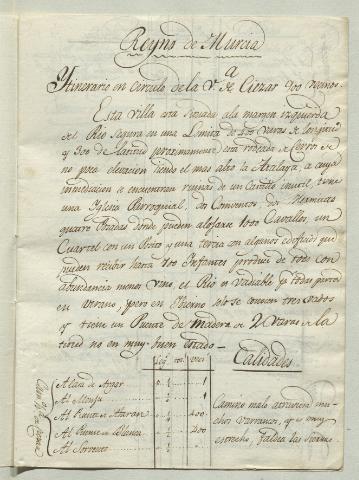 Reyno de Murcia
Ytinerario en circulo de la V.a de Ciezar 900 vecinos.
Esta Villa esta situada a la margen izquierda
del Rio Segura en una Limita de 400 varas de longitud
y 300 de latitud proximamente, esta rodeada de Cerros de
no poca elevacion siendo el mas alto la Atalaya, a cuya
inmediacion se encuentran ruinas de un Castillo inutil, tiene
una Yglesia Parroquial, dos Conventos, dos Hermitas
quatro Posadas donde pueden alojarse 1000 Cavallos, un
Cuartel con un Posito y una tercia con algunos edeficios que
pueden recibir hasta 700 Infantes produce de todo con
abundancia menos vino, el Rio es Vadiable por todas partes
en verano, pero en Ybierno solo se conocen tres vados
y tiene un Puente de Madera de 2 Varas de la
titud no en muy buen estado
Leg. Calidades
A la
Al
Al Puente de 400
Al Puente de Blanca 200
Al
Camino malo atraviesa mu
chos varrancos, y es muy
estrecho, faldea las Sierras